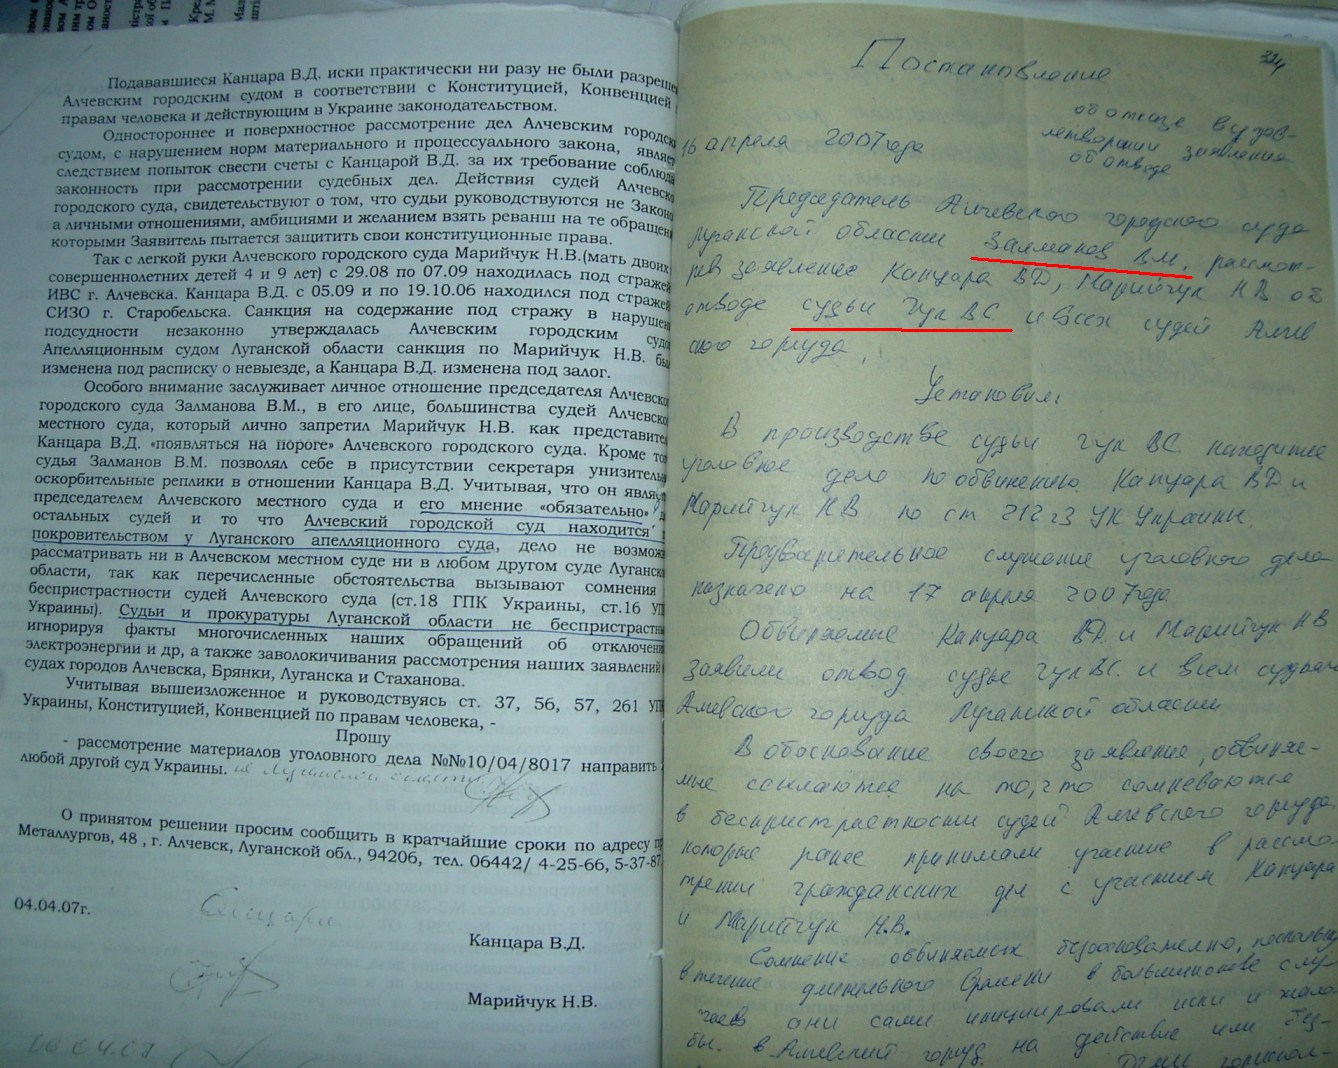 Подававшиеся Канцара В.Д. иски практически ни разу не были разреше
Алчевским городским судом в соответствии с Конституцией, Конвенцией
правам человека и действующим в Украине законодательством.
Одностороннее и поверхностное рассмотрение дел Алчевским городск
судом, с нарушением норм материального и процессуального закона, являе
следствием попыток свести счеты с Канцарой В.Д. за их требование соблюд
законность при рассмотрении судебных дел. Действия судей Алчевск
городского суда, свидетельствуют о том, что судьи руководствуются не Закон
а личными отношениями, амбициями и желанием взять реванш на те обращен
которыми Заявитель пытается защитить свои конституционные права.
Так с легкой руки Алчевского городского суда Марийчук Н.В.(мать двоих
совершеннолетних детей 4 и 9 лет) с 29.08 по 07.09 находилась под стражей
ИВС г. Алчевска. Канцара В.Д. с 05.09 и по 19.10.06 находился под стражей
СИЗО г. Старобельска. Санкция на содержание под стражу в нарушен
подсудности незаконно утверждалась Алчевским городским судо
Апелляционным судом Луганской области санкция по Марийчук Н.В. бы
изменена под расписку о невыезде, а Канцара В.Д. изменена под залог.
Особого внимание заслуживает личное отношение председателя Алчевско
городского суда Залманова В.М., в его лице, большинства судей Алчевско
местного суда, который лично запретил Марийчук Н.В. как представите
Канцара В.Д. «появляться на пороге» Алчевского городского суда. Кроме то
судья Залманов В.М. позволял себе в присутствии секретаря унизитель
оскорбительные реплики в отношении Канцара В.Д. Учитывая, что он являе
председателем Алчевского местного суда и его мнение «обязательно» д
остальных судей и то что Алчевский городской суд находится
покровительством у Луганского апелляционного суда, дело не возмож
рассматривать ни в Алчевском местном суде ни в любом другом суде Луганск
области, так как перечисленные обстоятельства вызывают сомнения
беспристрастности судей Алчевского суда (ст.18 ГПК Украины, ст.16 УП
Украины). Судьи и прокуратуры Луганской области не беспристрастн
игнорируя факты многочисленных наших обращений об отключени
электроэнергии и др, а также заволокичивания рассмотрения наших заявлений
судах городов Алчевска, Брянки, Луганска и Стаханова.
Учитывая вышеизложенное и руководствуясь ст. 37, 56, 57, 261 УП
Украины, Конституцией, Конвенцией по правам человека, -
Прошу
- рассмотрение материалов уголовного дела №№10/04/8017 направить
любой другой суд Украины. не Луганской области
О принятом решении просим сообщить в кратчайшие сроки по адресу пр
Металлургов, 48 , г. Алчевск, Луганской обл., 94206, тел. 06442/ 4-25-66, 5-37-87
04.04.07г.
Канцара
Канцара В.Д.
Марийчук Н.В.
324
Постановление
об отказе в удов-
летворении заявления
об отводе
16 апреля 2007года
Председатель Алчевского городского суда
Луганской области Залманов В.М. рассмот-
рев заявление Канцара ВД, Марийчук НВ об
отводе судьи Гук ВС и всех судей Алчев
ского горсуда,
Установил:
В производстве судьи Гук ВС находится
уголовное дело по обвинению Канцара ВД и
Марийчук НВ по ст 212 ч3 УК Украины.
Предварительное слушание уголовного дела
назначено на 17 апреля 2007года
Обвиняемые Канцара ВД и Марийчук НВ
заявили отвод судье Гук ВС. и всем судьям
Алчевского горсуда Луганской области
В обоснование своего заявления, обвиняе-
мые ссылаются на то, что сомневаются
в беспристрастности судей Алчевского горсуда
которые ранее принимали участие в рассмо-
трении гражданских дел с участием Канцара
и Марийчук Н.В.
Сомнение обвиняемых безосновательно, поскольку
в течение длительного времени в большинстве слу-
чаев они сами инициировали иски и жало
бы. в Алчевский горсуд на действие или без-